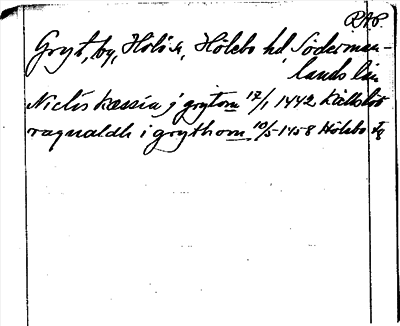 RAP.
Gryt, by, Hölö sn, Hölebo hd, Söderman-
lands län
Niclis kassia j grytom 17/1 1442
ragnaldh i grythom 10/5 1458 Hölebo